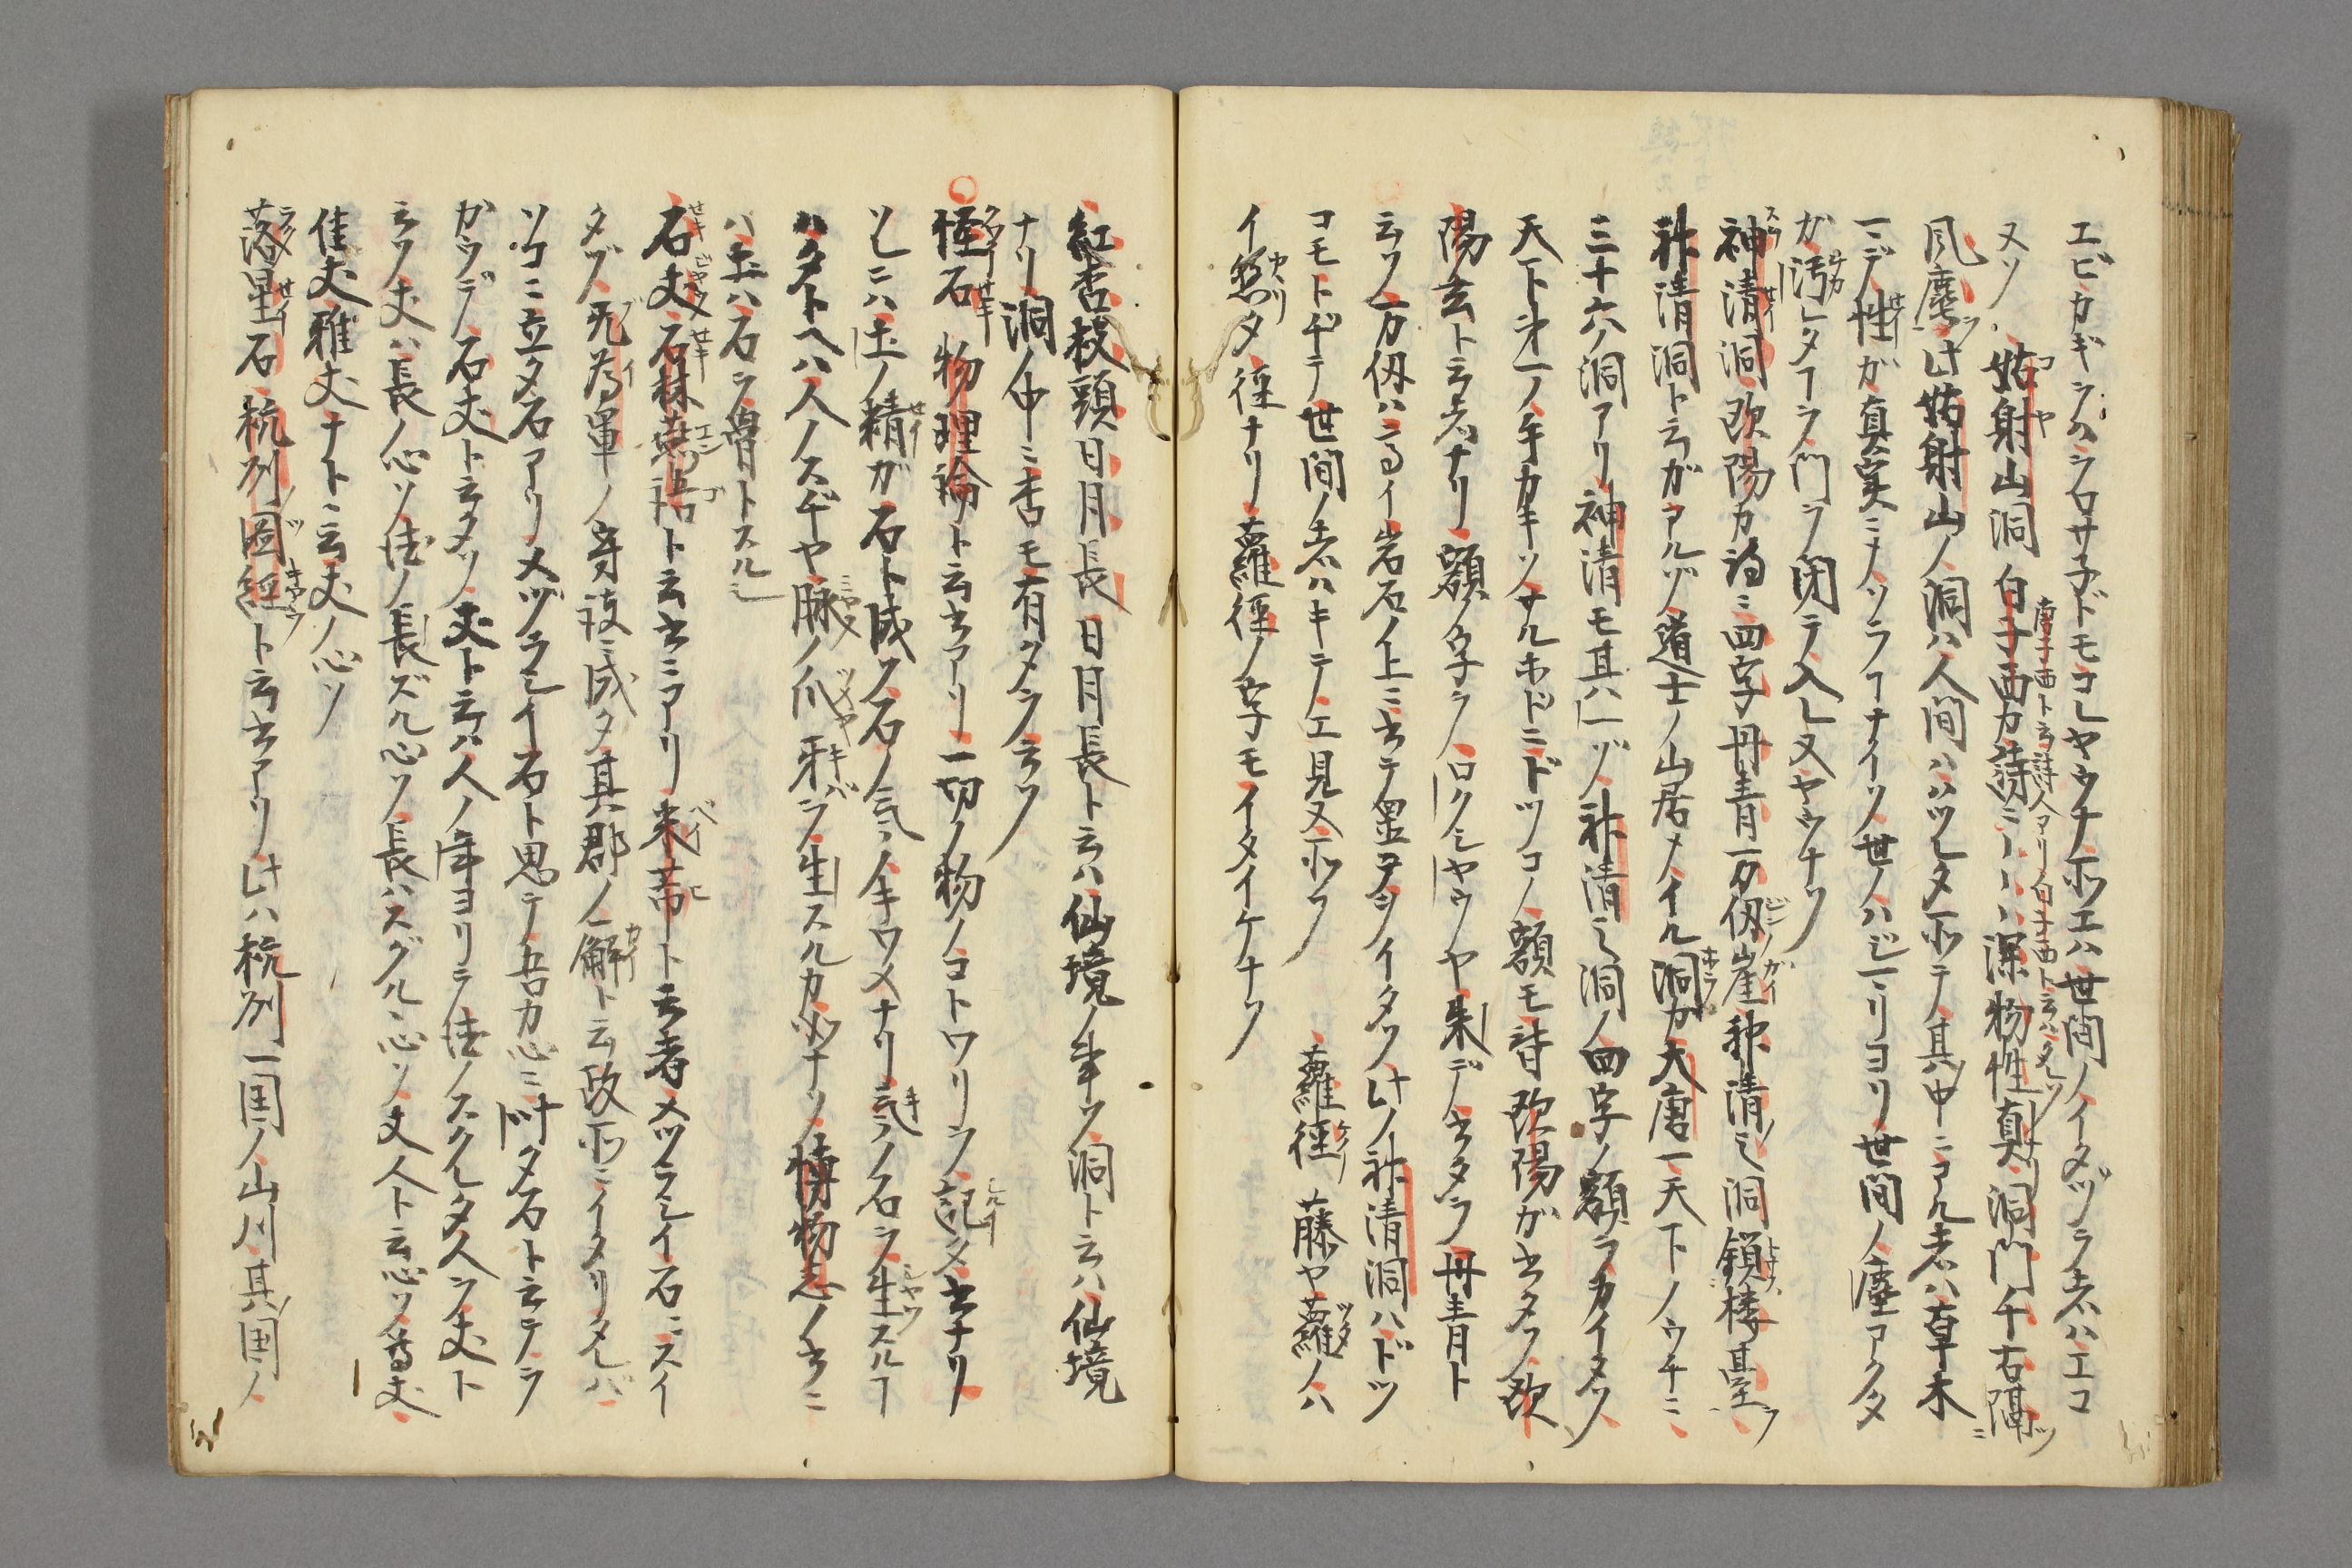 エビカギラハシロサ子ドモコレヤウナ所エハ世間ノイタヅラ者ハエコ
ヌソ 姑射山洞 白子西カ詩ニーハ深物性真洞門千古隔
唐子西ト云詩人アリ白子西ト云ハ
風塵此姑射山ノ洞ハ人間ハハツレタ所テ其中ニアル者ハ草木
マデ性ガ真実ニメソラフナイソ世ノハジマリヨリ世間ノ塵アクタ
ガ汚レタフラ門ヲ閉テ入レヌヤウナソ
神清洞 欧陽カ詩ニ四字丹青万仭崖神清之洞鎖楼臺
神清洞ト云ガアルゾ道士ノ山居メイル洞カ大唐一天下ノウチニ
三十六ノ洞アリ神清モ其八一ゾ神清之洞ノ四字ノ額ヲカイタソ
天下オ一ノ手カキソサルホドニドツコノ額モ皆欧陽ガカタソ欧
陽玄ト云者ナリ額ノ字ヲロクシヤウヤ朱デカタラ丹青ト
云ソ万仭ハ高イ岩石ノ上ニカテ置タイタソ此ノ神清洞ハドツ
コモトヂテ世間ノ者ハキテノエ見ヌ所ソ 蘿徑 藤ヤ蘿ノハ
イ悠タ徑ナリ蘿徑ノ字モイタイケナソ
紅杏枝頭日月長 日月長ト云ハ仙境ノ事ソ洞ト云ハ仙境
ナリ洞ノ中ニ杏モ有タラ云ソ
怪石 物理論ト云書アリ一切ノ物ノコトワリヲ記シタ書ナリ
ソレニハ土ノ精ガ石ト成ソ石ハ気ノキウメナリ気ノ石ヲ生スルフ
ハタトヘハ人ノスヂヤ脉ノ爪牙ヲ生スルカ如ナソ博物志ノ書ニ
ハ土ハ石ヲ骨トスル也
石丈 石林燕語ト云書ニアリ米芾ト云者メヅラシイ石ニスイ
タゾ无為軍ノ守護ニ成タ其郡ノ解ト云政所ニイタリタレバ
ソコニ立タ石アリメヅラシイ石ト思テ吾カ心ニ叶タ石ト云テラ
ガツデ石丈ト云タソ丈ト云ハ人ノ年ヨリテ徳ノスクレタ人ヲ丈ト
云ソ丈ハ長ノ心ソ徳ノ長ズル心ソ長ハスグル心ソ丈人ト云心ソ尊丈
佳丈雅丈ナトニ云丈ノ心ソ
落星石 杭州圖經ト云書アリ此ハ杭州一国ノ山川其国ノ